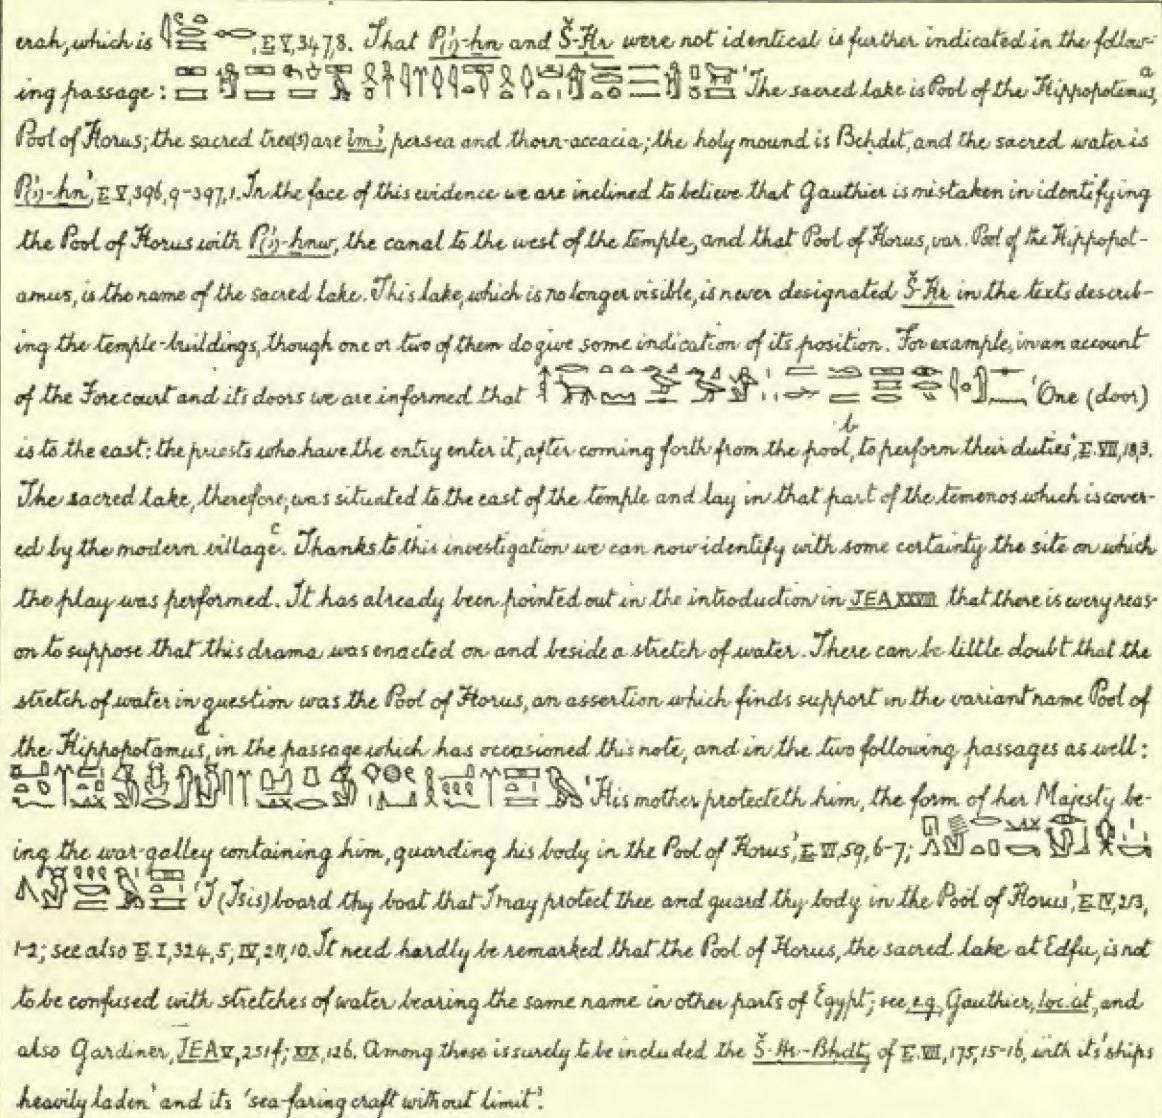 erah, which is , E V, 347, 8. That P(ꜣ)-hn and Š-Ḥr were not identical is further indicated in the follow-
ing passage: 'The sacred lake is Pool of the Hippopotamus,ᵃ
Pool of Horus; the sacred tree(s) are imꜣ, persea and thorn-accacia; the holy mound is Behdet, and the sacred water is
P(ꜣ)-hn', E V, 396, 9-397, 1. In the face of this evidence we are inclined to believe that Gauthier is mistaken in identifying
the Pool of Horus with P(ꜣ)-hnw, the canal to the west of the temple, and that Pool of Horus, var. Pool of the Hippopot-
amus, is the name of the sacred lake. This lake, which is no longer visible, is never designated Š-Ḥr in the texts describ-
ing the temple-buildings, though one or two of them do give some indication of its position. For example, in an account
of the Forecourt and its doors we are informed that 'One (door)
is to the east: the priests who have the entry enter it, after coming forth from the pool,ᵇ to perform their duties', E. VII, 18, 3.
The sacred lake, therefore, was situated to the east of the temple and lay in that part of the temenos which is cover-
ed by the modern villageᶜ. Thanks to this investigation we can now identify with some certainty the site on which
the play was performed. It has already been pointed out in the introduction in JEA XXVIII that there is every reas-
on to suppose that this drama was enacted on and beside a stretch of water. There can be little doubt that the
stretch of water in question was the Pool of Horus, an assertion which finds support in the variant name Pool of
the Hippopotamus,ᵈ in the passage which has occasioned this note, and in the two following passages as well:
'His mother protecteth him, the form of her Majesty be-
ing the war-galley containing him, guarding his body in the Pool of Horus', E. VI, 59, 6-7;
'I (Isis) board thy boat that I may protect thee and guard thy body in the Pool of Horus', E. IV, 213,
1-2; see also E. I, 324, 5; IV, 211, 10. It need hardly be remarked that the Pool of Horus, the sacred lake at Edfu, is not
to be confused with stretches of water bearing the same name in other parts of Egypt; see, e.g., Gauthier, loc. cit., and
also Gardiner, JEA V, 251 f; XIX, 126. Among these is surely to be included the Š-Ḥr-Bḥdt, of E. VII, 175, 15-16, with its 'ships
heavily laden' and its 'sea-faring craft without limit'.